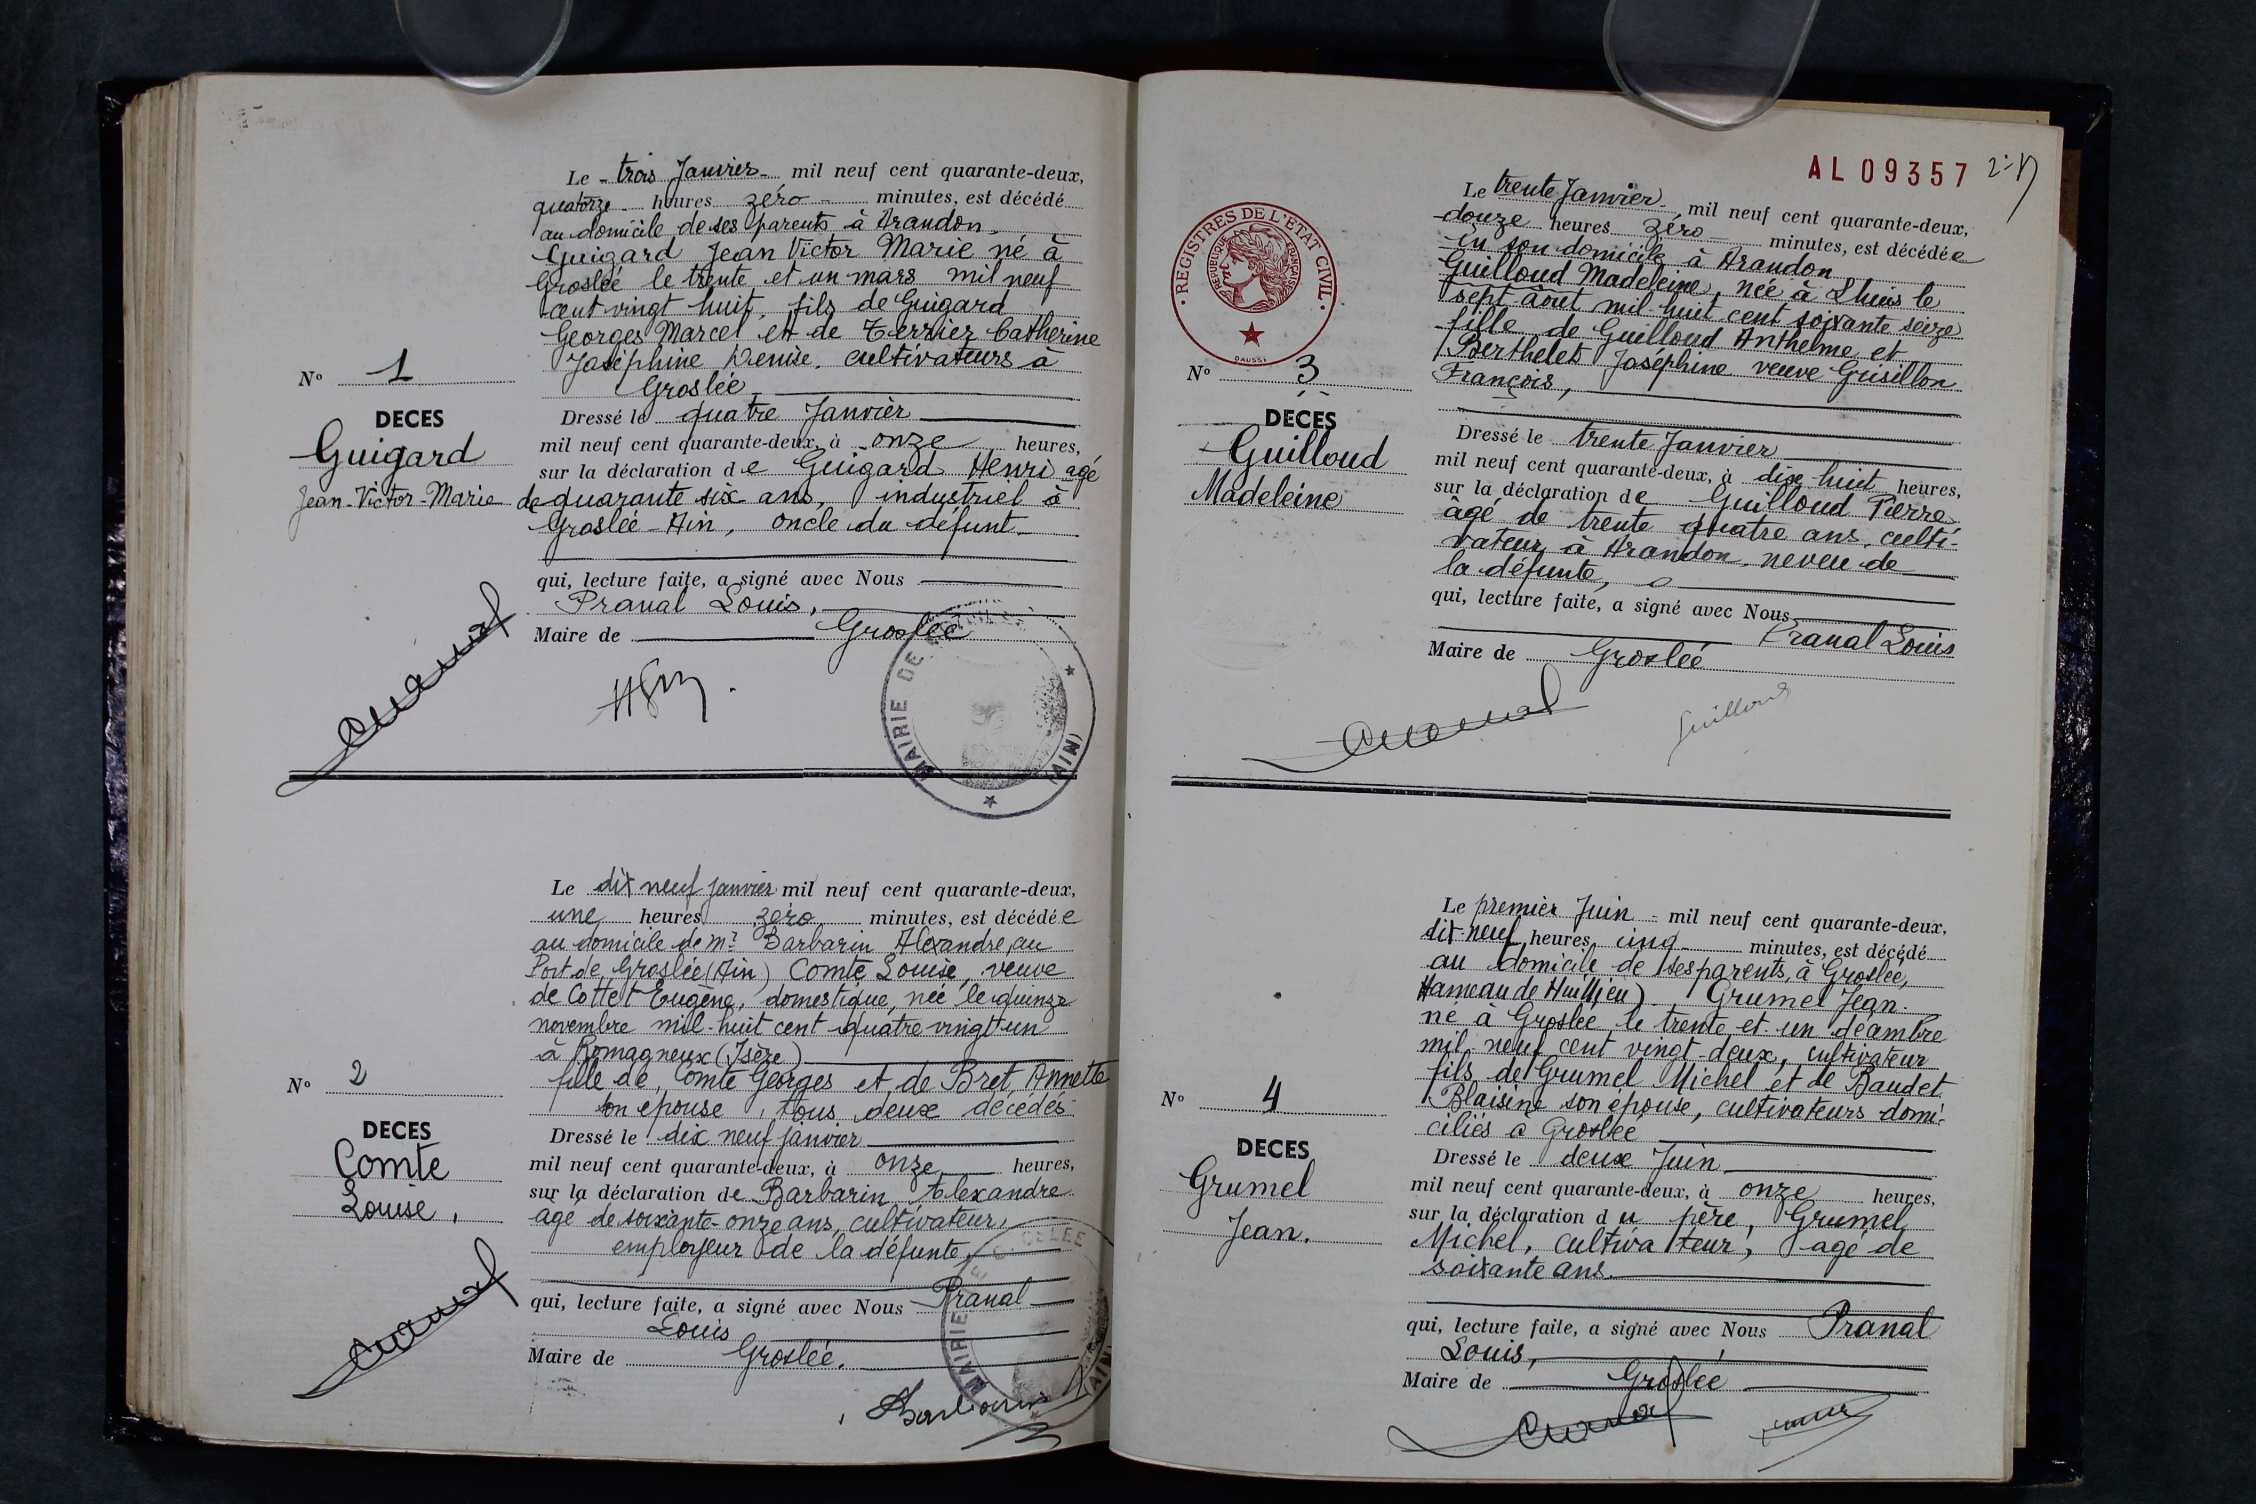 Le trois Janvier mil neuf cent quarante-deux,
quatorze heures zéro minutes, est décédé
au domicile de ses parents à Arandon
Guigard Jean Victor Marie né à
Groslée le trente et un mars mil neuf
cent vingt huit, fils de Guigard
Georges Marcel et de Terrier Catherine
Joséphine Denise, cultivateurs à
Groslée
N° 1
DECES
Guigard
Jean-Victor-Marie
Dressé le quatre Janvier
mil neuf cent quarante-deux, à onze heures,
sur la déclaration de Guigard Henri agé
de quarante six ans, industriel à
Groslée-Ain, oncle du défunt
qui, lecture faite, a signé avec Nous
Pranal Louis,
Maire de Groslée
MAIRIE DE
(AIN)
Le dix neuf janvier mil neuf cent quarante-deux,
une heures zéro minutes, est décédée
au domicile de mr Barbarin Alexandre, au
Port de Groslée (Ain) Comte Louise, veuve
de Cottet Eugène, domestique, née le quinze
novembre mil-huit cent quatre vingt un
à Romagneux (Isère)
fille de Comte Georges et de Bret Annette
son epouse, tous deux décédés
N° 2
DECES
Comte
Louise,
Dressé le dix neuf janvier
mil neuf cent quarante-deux, à onze heures,
sur la déclaration de Barbarin Alexandre
agé de soixante-onze ans, cultivateur,
employeur de la défunte,
qui, lecture faite, a signé avec Nous Pranal
Louis
Maire de Groslée.
MAIRIE
Barbarin
AL 09357
REGISTRES DE L'ETAT CIVIL
REPUBLIQUE FRANÇAISE
DAUSSI
Le trente Janvier mil neuf cent quarante-deux,
douze heures zéro minutes, est décédée
en son domicile à Arandon
Guilloud Madeleine, née à Lhuis le
sept août mil huit cent soixante seize
fille de Guilloud Anthelme et
Berthelet Joséphine veuve Grisillon
François,
N° 3
DECES
Guilloud
Madeleine
Dressé le trente Janvier
mil neuf cent quarante-deux, à dix huit heures,
sur la déclaration de Guilloud Pierre,
âgé de trente quatre ans, culti-
vateur à Arandon, neveu de
la défunte,
qui, lecture faite, a signé avec Nous
Pranal Louis
Maire de Groslée
Guilloud
Le premier Juin mil neuf cent quarante-deux,
dix-neuf heures cinq minutes, est décédé
au domicile de ses parents, à Groslée,
Hameau de Huillieu) Grumel Jean
né à Groslée le trente et un décembre
mil-neuf cent vingt-deux, cultivateur
fils de Grumel Michel et de Baudet
Blaisine son épouse, cultivateurs domi-
ciliés à Groslée
N° 4
DECES
Grumel
Jean.
Dressé le deux Juin
mil neuf cent quarante-deux, à onze heures,
sur la déclaration du père, Grumel
Michel, cultivateur, agé de
soixante ans.
qui, lecture faite, a signé avec Nous Pranal
Louis,
Maire de Groslée